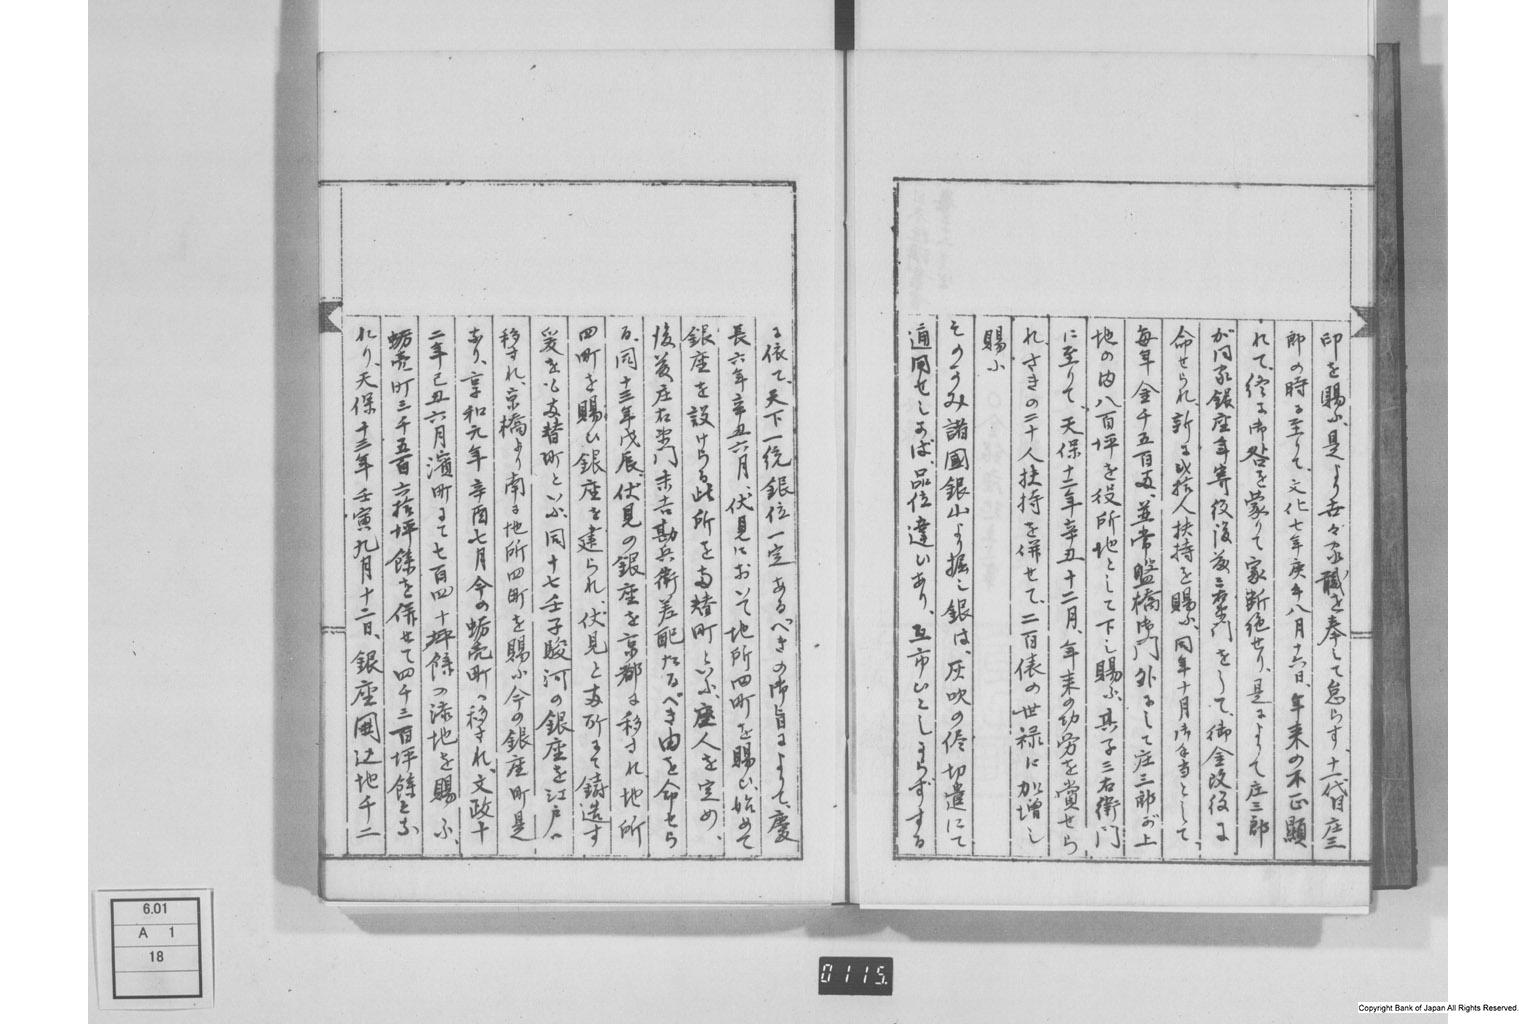 印を賜ふ、是より世々家職を奉して怠らす、十一代目庄三
郎の時に至りて、文化七年庚午八月十六日、年来の不正顕
れて、終に御咎を蒙りて家断絶せり、是によりて庄三郎
が同家銀座年寄役後藤三右衛門をして、御金改役に
命せられ、新に弐拾人扶持を賜ふ、同年十月御手当として
毎年金千五百両、並常盤橋御門外にして庄三郎が上
地の内八百坪を役所地として下し賜ふ、其子三右衛門
に至りて、天保十二年辛丑十二月、年来の功労を賞せら
れ、さきの二十人扶持を併せて、二百俵の世禄に加増し
賜ふ
そのうみ諸國銀山より掘し銀は、灰吹の侭切遣にて
通用せしかば、品位違いあり、互市いとしまらずする
に依て、天下一統銀位一定あるべきの御旨によりて、慶
長六年辛丑六月、伏見において地所四町を賜ひ、始めて
銀座を設けらる此所を両替町といふ、座人を定め、
後藤庄右衛門末吉勘兵衛差配たるべき由を命せら
る、同十三年戊辰、伏見の銀座を京都に移され、地所
四町を賜ひ銀座を建られ、伏見と両所にて鋳造す
爰をも両替町といふ、同十七壬子駿河の銀座を江戸へ
移され、京橋より南に地所四町を賜ふ今の銀座町是
なり、享和元年辛酉七月今の蛎売町へ移され、文政十
二年己丑六月濱町にて七百四十坪餘の添地を賜ふ、
蛎売町三千五百六拾坪餘を併せて四千三百坪餘とな
れり、天保十三年壬寅九月十二日、銀座囲込地千二
6.01
A 1
18
0115.
Copyright Bank of Japan All Rights Reserved.